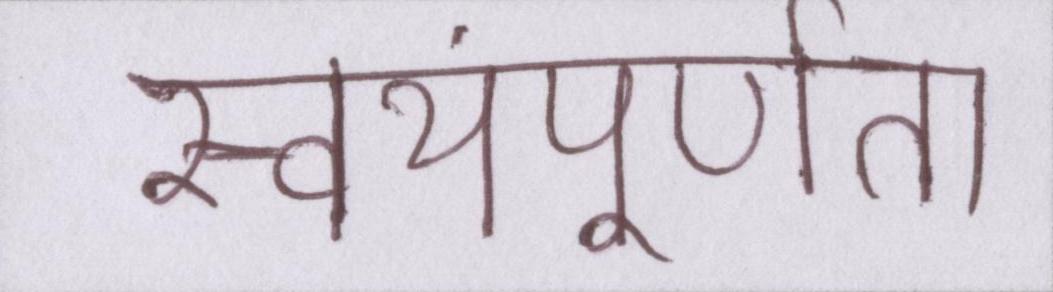 स्वयंपूर्णता